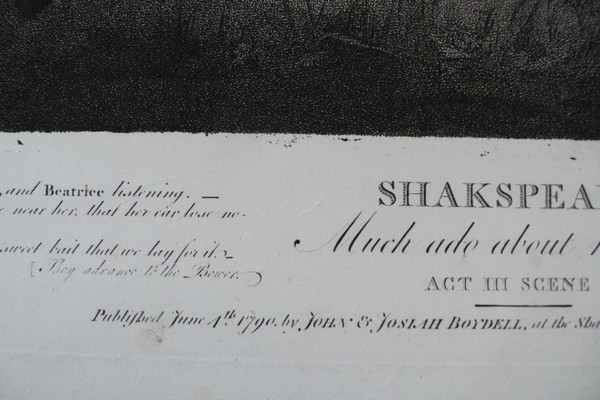 , and Beatrice listening. —
near her, that her ear lose no-
sweet bait that we lay for it. –
[They advance to the Bower.
SHAKSPEA
Much ado about
ACT III SCENE
Publiſhed June 4th 1790, by JOHN & JOSIAH BOYDELL, at the Sha